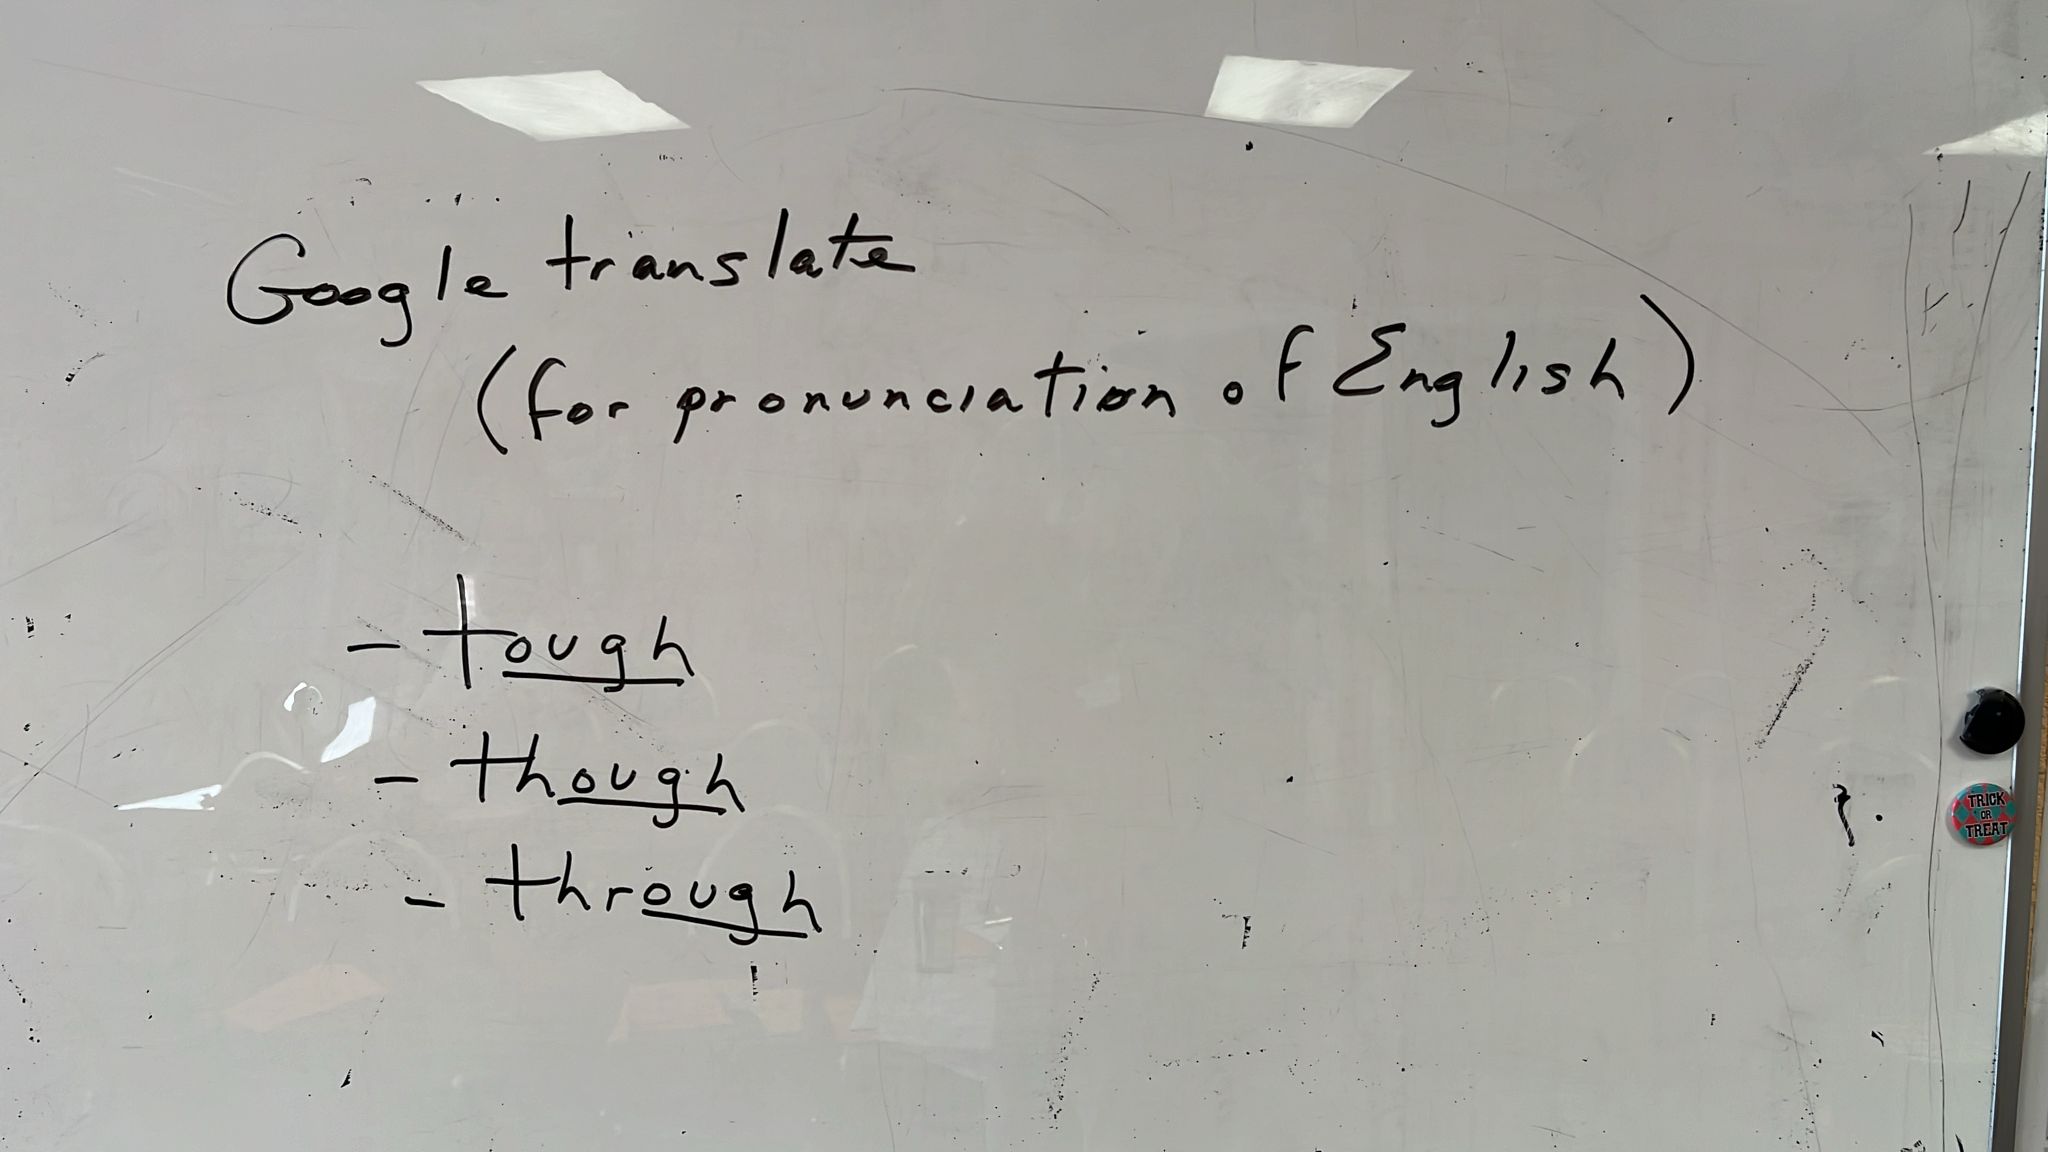 Google translate
(for pronunciation of English)
- tough
- though
- through
TRICK
OR
TREAT